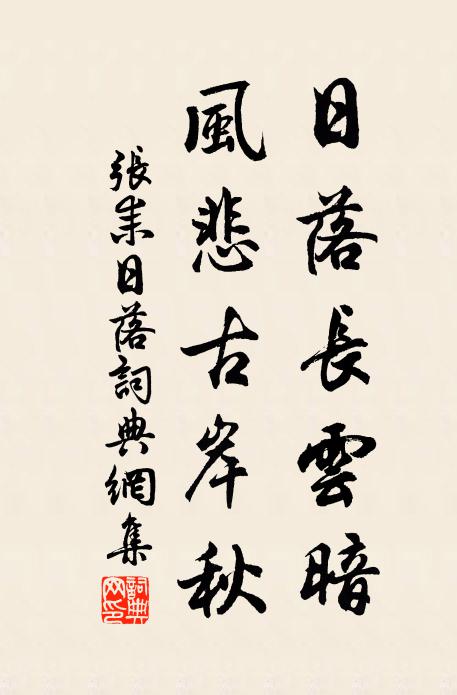 日落長雲暗
風悲古岸秋
張耒日落詞典網集
詞典网印